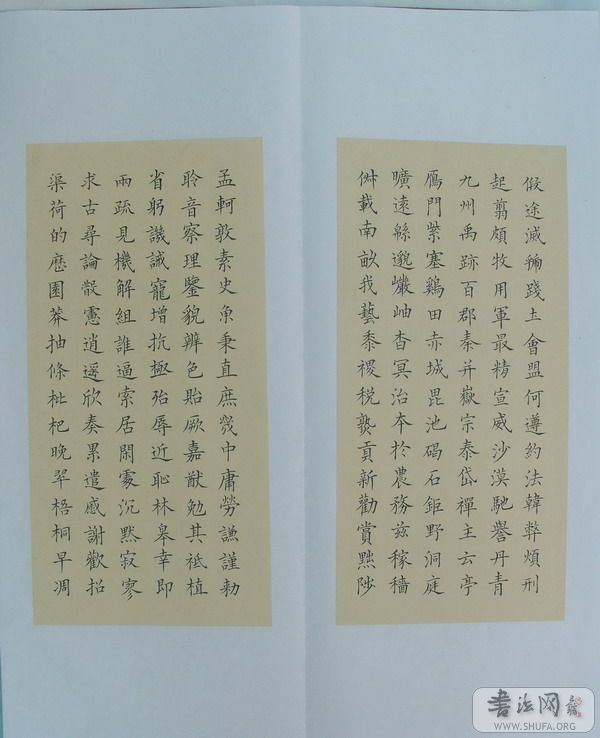 假途滅虢踐土會盟何遵約法韓弊煩刑
起翦頗牧用軍最精宣威沙漠馳譽丹青
九州禹跡百郡秦并嶽宗泰岱禪主云亭
鴈門紫塞鷄田赤城昆池碣石鉅野洞庭
曠遠緜邈巖岫杳冥治本於農務茲稼穡
俶載南畝我藝黍稷税熟貢新勸賞黜陟
孟軻敦素史魚秉直庶幾中庸勞謙謹勑
聆音察理鑒貌辨色貽厥嘉猷勉其祗植
省躬譏誡寵增抗極殆辱近恥林皋幸即
兩疏見機解組誰逼索居閑處沉默寂寥
求古尋論散慮逍遥欣奏累遣慼謝歡招
渠荷的歷園莽抽條枇杷晚翠梧桐早凋
書法网
WWW.SHUFA.ORG